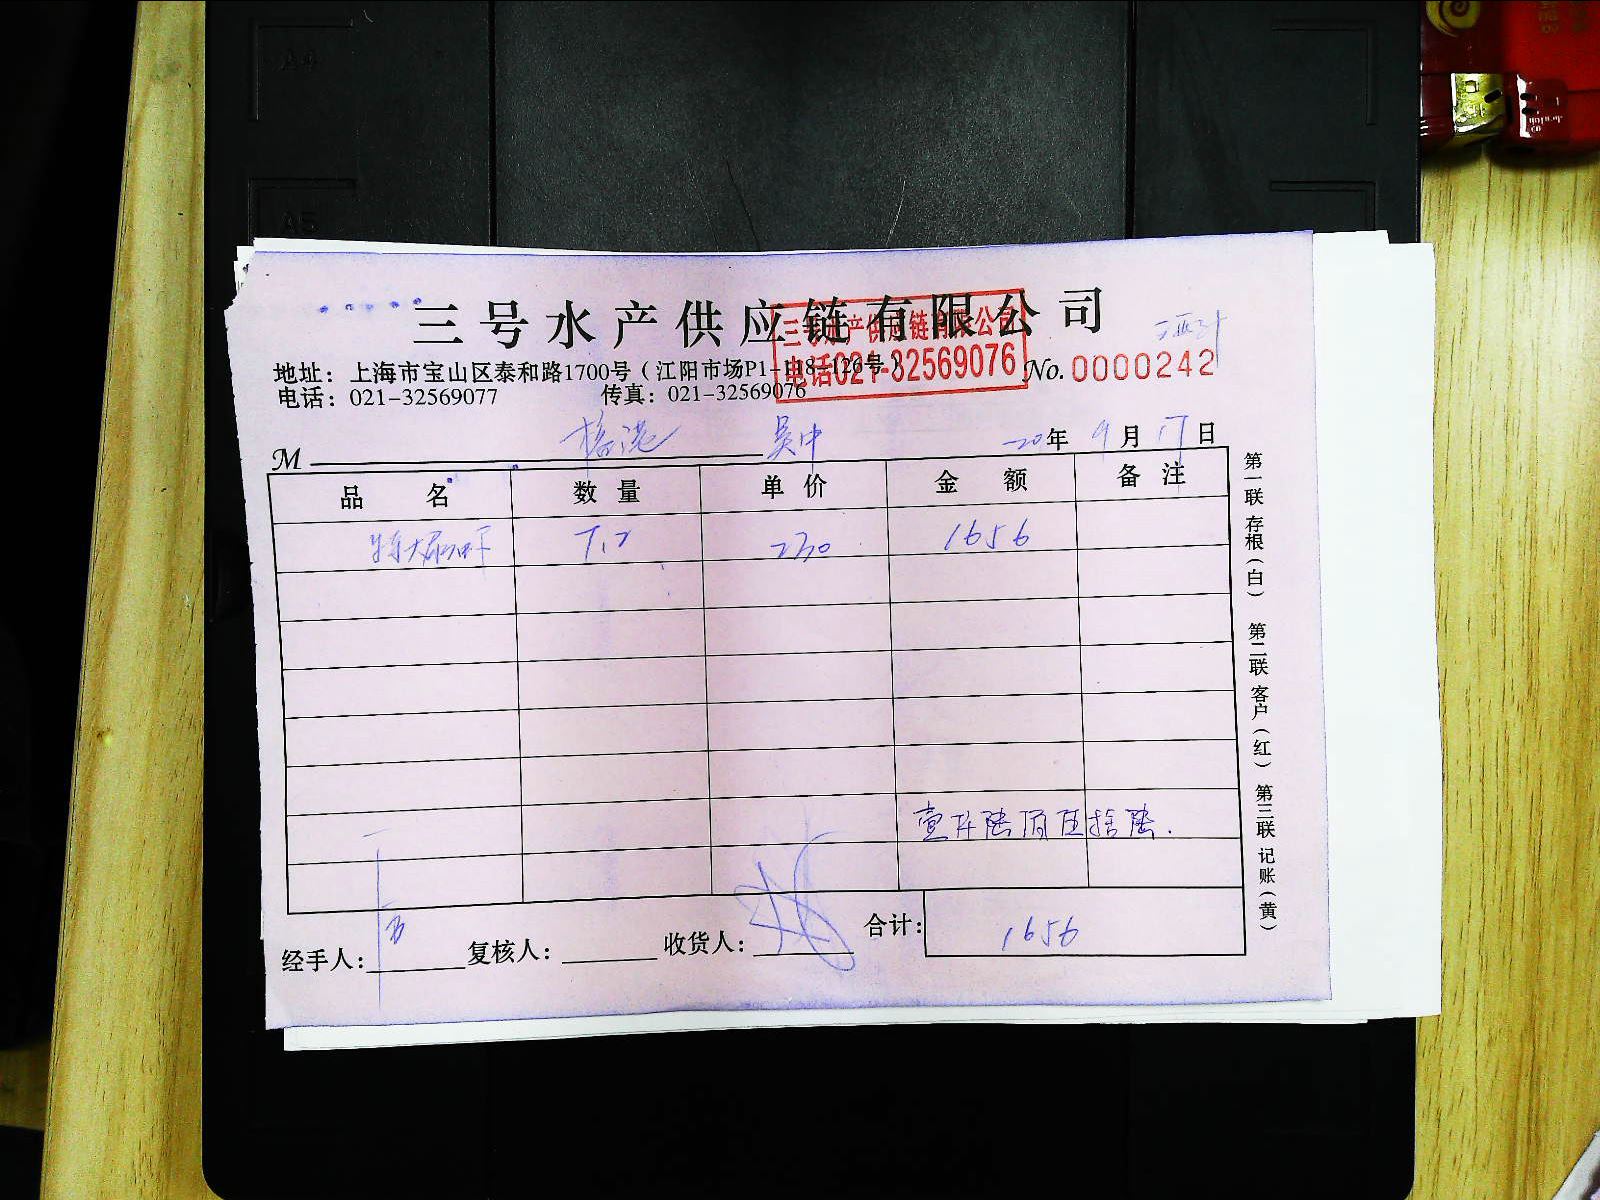 三号水产供应链有限公司
三号水产供应链有限公司
电话021-32569076
地址：上海市宝山区泰和路1700号（江阳市场P1-118-126号）
No. 0000242
电话：021-32569077 传真：021-32569076
M 吴中 20年 9月 17日
品名 数量 单价 金额 备注
7.2 230 1656
壹仟陆佰伍拾陆.
经手人： 复核人： 收货人： 合计： 1656
第一联 存根（白） 第二联 客户（红） 第三联 记账（黄）
A4
A5